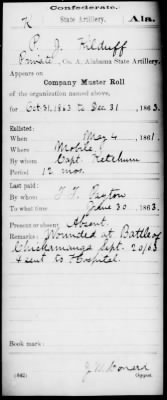 Confederate.
K State Artillery. Ala.
P. J. Kilduff
Private, Co. A, Alabama State Artillery.
Appears on
Company Muster Roll
of the organization named above,
for Oct 31, 1863 to Dec 31, 1863.
Enlisted:
When May 4, 1861.
Where Mobile
By whom Capt. Ketchum
Period 12 mos.
Last paid:
By whom T. J. Paxton
To what time June 30, 1863.
Present or absent Absent
Remarks: Wounded at Battle of
Chickamauga Sept. 20/63
& sent to Hospital.
Book mark:
(642) Copyist.